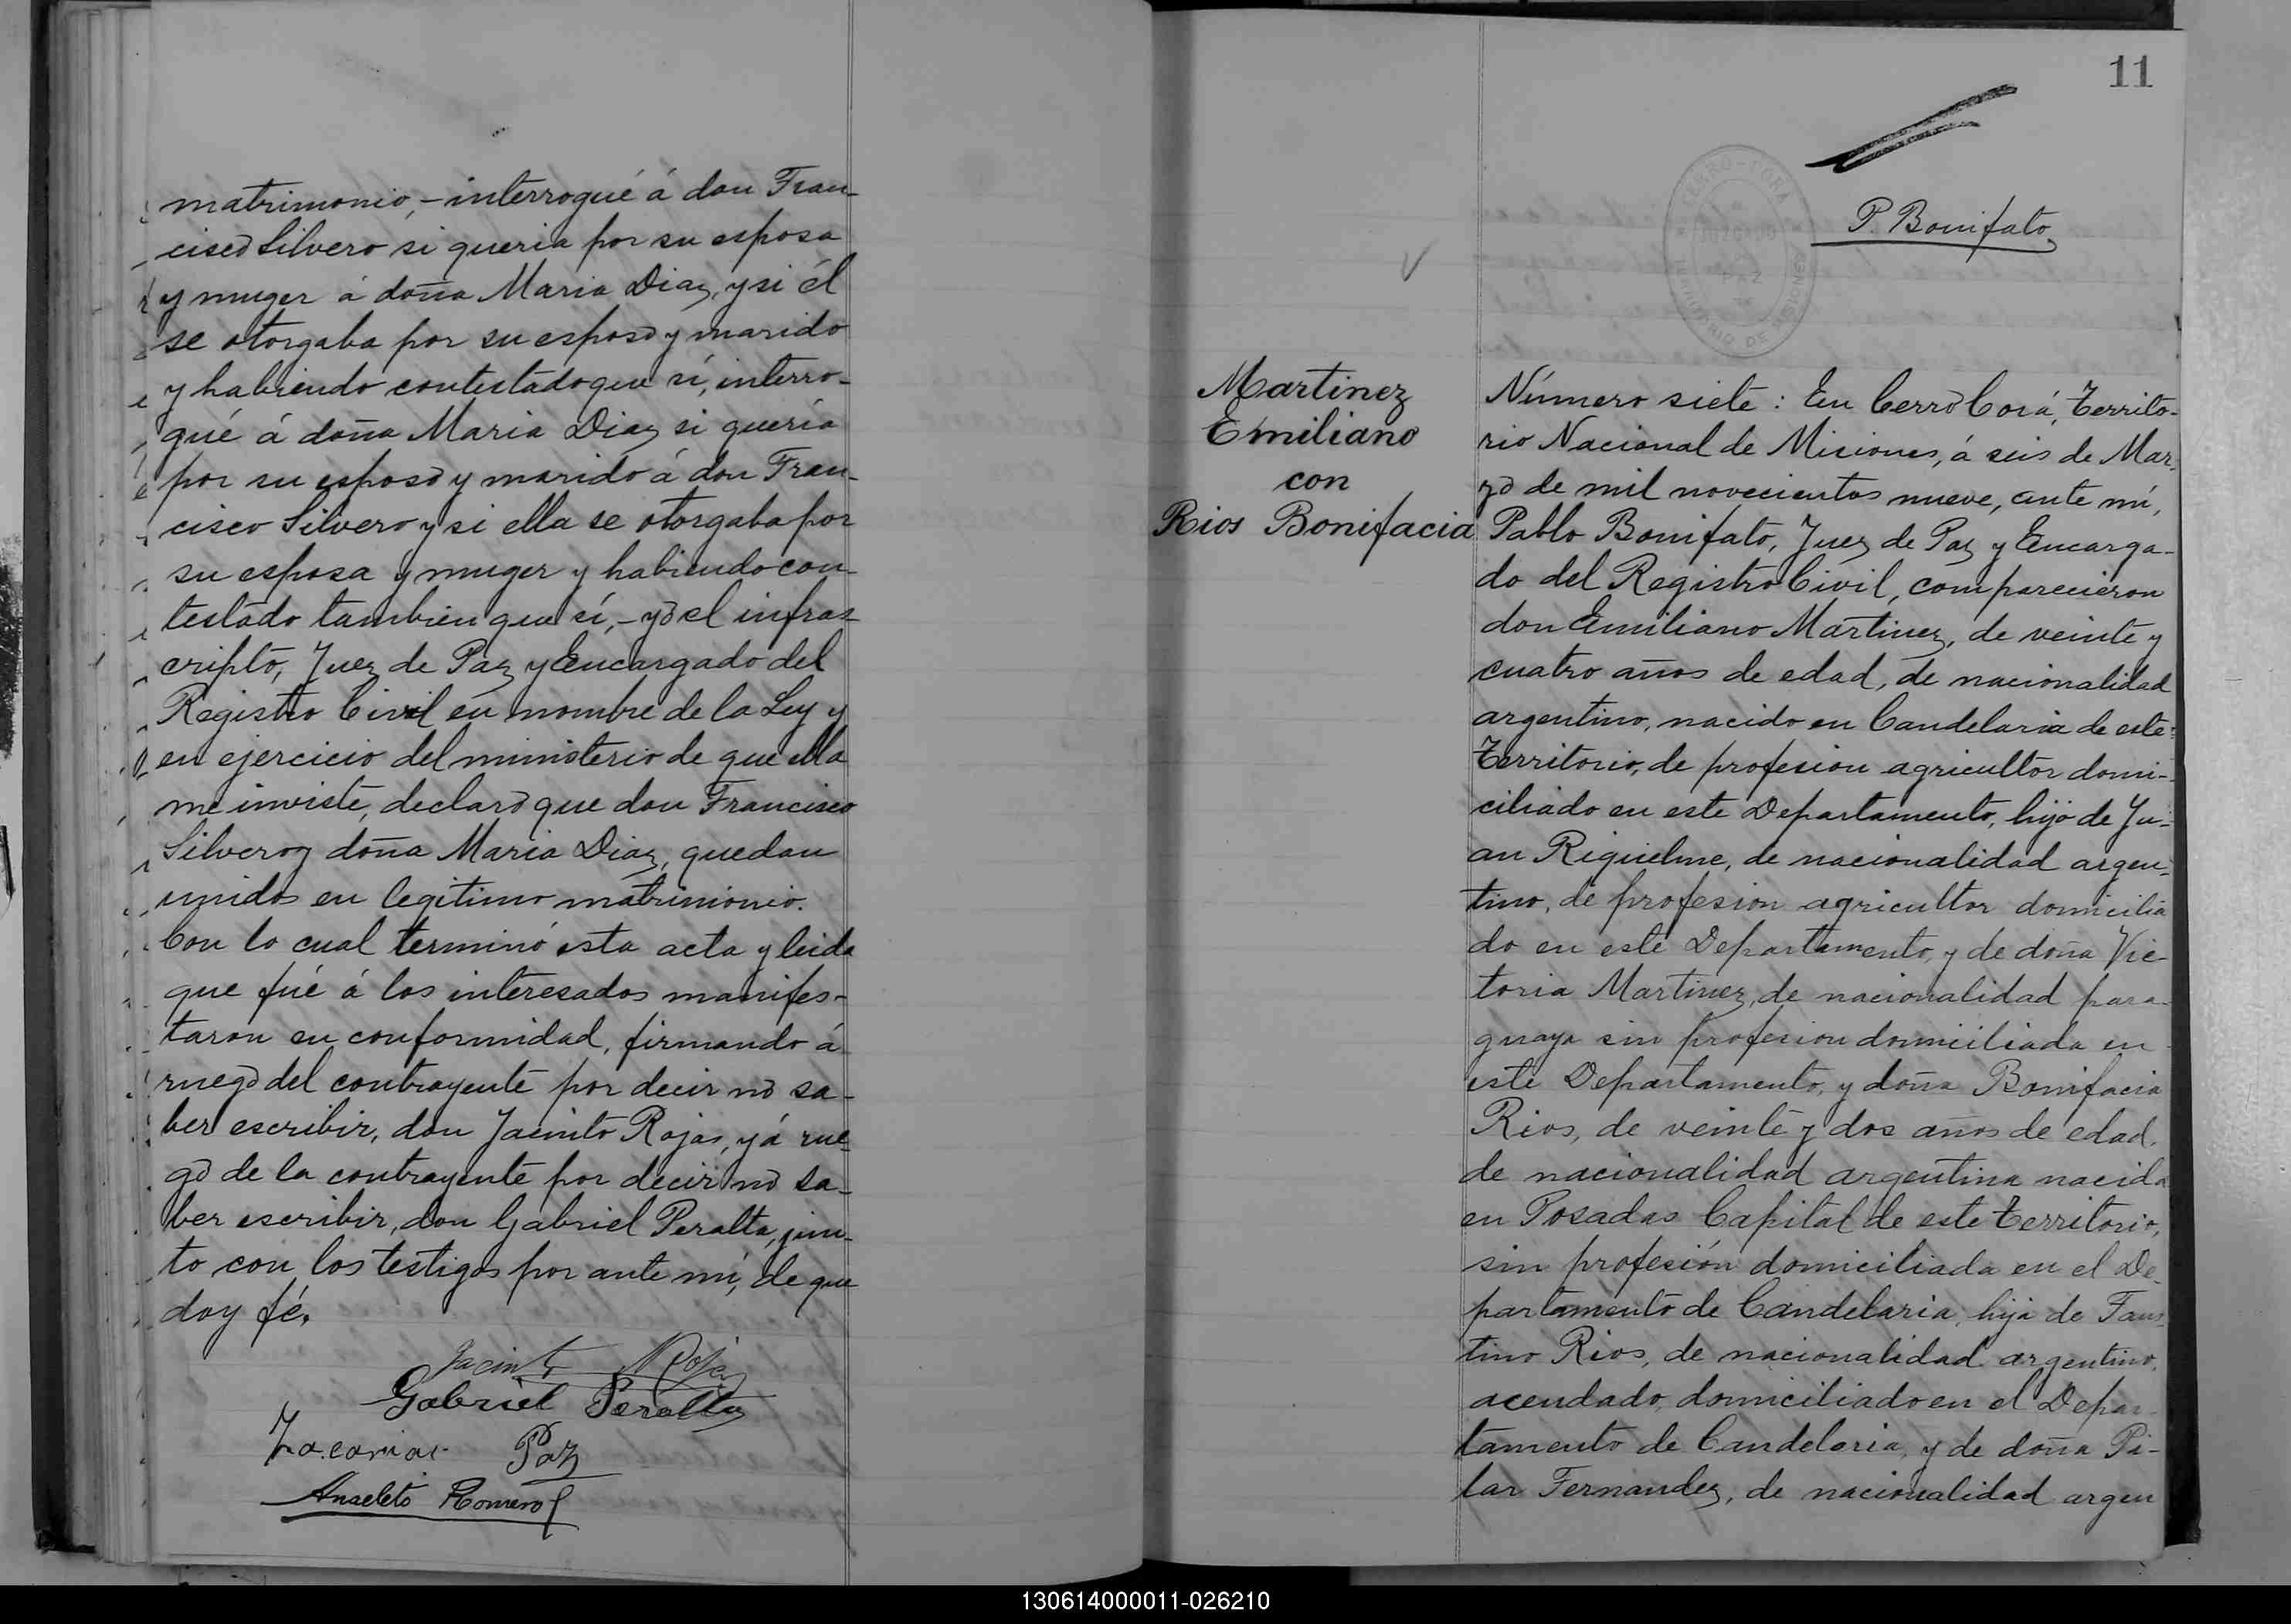 matrimonio,-interrogué á don Fran-
cisco Silvero si queria por su esposa
y muger á doña Maria Diaz, y si él
se otorgaba por su esposo y marido
y habiendo contestado que sí, interro-
gué á doña Maria Diaz si quería
por su esposo y marido á don Fran-
cisco Silvero y si ella se otorgaba por
su esposa y muger y habiendo con-
testado tambien que sí,- yo el infras-
cripto, Juez de Paz y Encargado del
Registro Civil en nombre de la Ley y
en ejercicio del ministerio de que ella
me inviste, declaro que don Francisco
Silvero y doña Maria Diaz, quedan
unidos en legitimo matrimonio.
Con lo cual terminó esta acta y leida
que fué á los interesados manifes-
taron su conformidad, firmando á
ruego del contrayente por decir no sa-
ber escribir, don Jacinto Rojas, y á rue-
go de la contrayente por decir no sa-
ber escribir, don Gabriel Peralta, jun-
to con los testigos por ante mí, de que
doy fé.
Jacinto Rojas
Gabriel Peralta
Zacarias Paz
Anseleto Romero
11
P. Bonifato
Martinez
Emiliano
con
Rios Bonifacia
Número siete: En Cerro Corá, Territo-
rio Nacional de Misiones, á seis de Mar-
zo de mil novecientos nueve, ante mí,
Pablo Bonifato, Juez de Paz y Encarga-
do del Registro Civil, comparecieron
don Emiliano Martinez, de veinte y
cuatro años de edad, de nacionalidad
argentino, nacido en Candelaria de este
Territorio, de profesion agricultor domi-
ciliado en este Departamento, hijo de Ju-
an Riquelme, de nacionalidad argen-
tino, de profesion agricultor domicilia
do en este Departamento, y de doña Vic-
toria Martinez, de nacionalidad para-
guaya sin profesion domiciliada en
este Departamento, y doña Bonifacia
Rios, de veinte y dos años de edad,
de nacionalidad argentina nacida
en Posadas Capital de este Territorio,
sin profesión domiciliada en el De-
partamento de Candelaria, hija de Faus
tino Rios, de nacionalidad argentino,
acendado, domiciliado en el Depar
tamento de Candelaria, y de doña Pi-
lar Fernandez, de nacionalidad argen
130614000011-026210